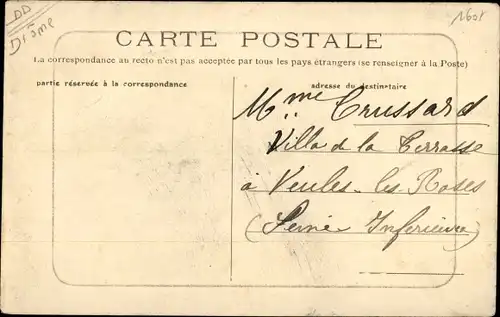 DD
Drôme
CARTE POSTALE
La correspondance au recto n'est pas acceptée par tous les pays étrangers (se renseigner à la Poste)
partie réservée à la correspondance
adresse du destinataire
Mme Crussard
Villa de la Terrasse
à Veules-les-Roses
(Seine Inférieure)